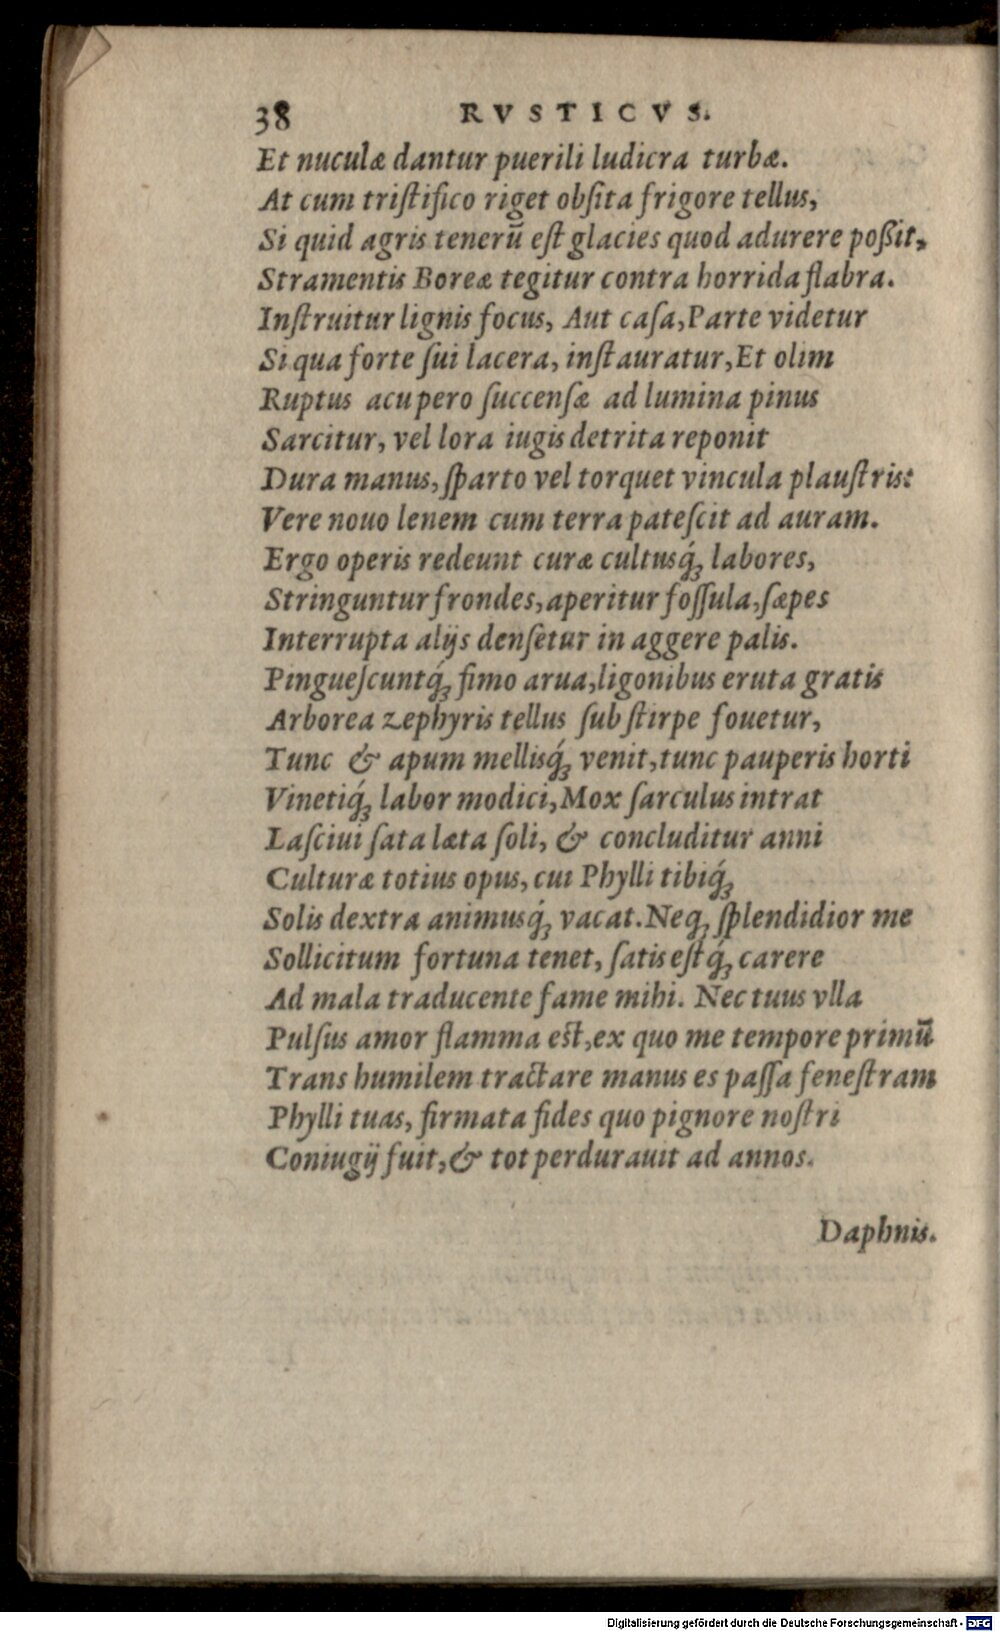 38 RVSTICVS.
Et nuculæ dantur puerili ludicra turbæ.
At cum triſtifico riget obſita frigore tellus,
Si quid agris tenerū eſt glacies quod adurere poßit,
Stramentis Boreæ tegitur contra horrida flabra.
Inſtruitur lignis focus, Aut caſa, Parte videtur
Si qua forte ſui lacera, inſtauratur, Et olim
Ruptus acu pero ſuccenſæ ad lumina pinus
Sarcitur, vel lora iugis detrita reponit
Dura manus, ſparto vel torquet vincula plauſtris:
Vere nouo lenem cum terra pateſcit ad auram.
Ergo operis redeunt curæ cultusq́ꝫ labores,
Stringuntur frondes, aperitur foſſula, ſæpes
Interrupta alijs denſetur in aggere palis.
Pingueſcuntq́ꝫ fimo arua, ligonibus eruta gratis
Arborea zephyris tellus ſub ſtirpe fouetur,
Tunc & apum mellisq́ꝫ venit, tunc pauperis horti
Vinetiq́ꝫ labor modici, Mox ſarculus intrat
Laſciui ſata læta ſoli, & concluditur anni
Culturæ totius opus, cui Phylli tibiq́ꝫ
Solis dextra animusq́ꝫ vacat. Neqꝫ ſplendidior me
Sollicitum fortuna tenet, ſatis eſtq́ꝫ carere
Ad mala traducente fame mihi. Nec tuus vlla
Pulſus amor flamma eſt, ex quo me tempore primū
Trans humilem tractare manus es paſſa feneſtram
Phylli tuas, firmata fides quo pignore noſtri
Coniugij fuit, & tot perdurauit ad annos.
Daphnis.
Digitalisierung gefördert durch die Deutsche Forschungsgemeinschaft - DFG